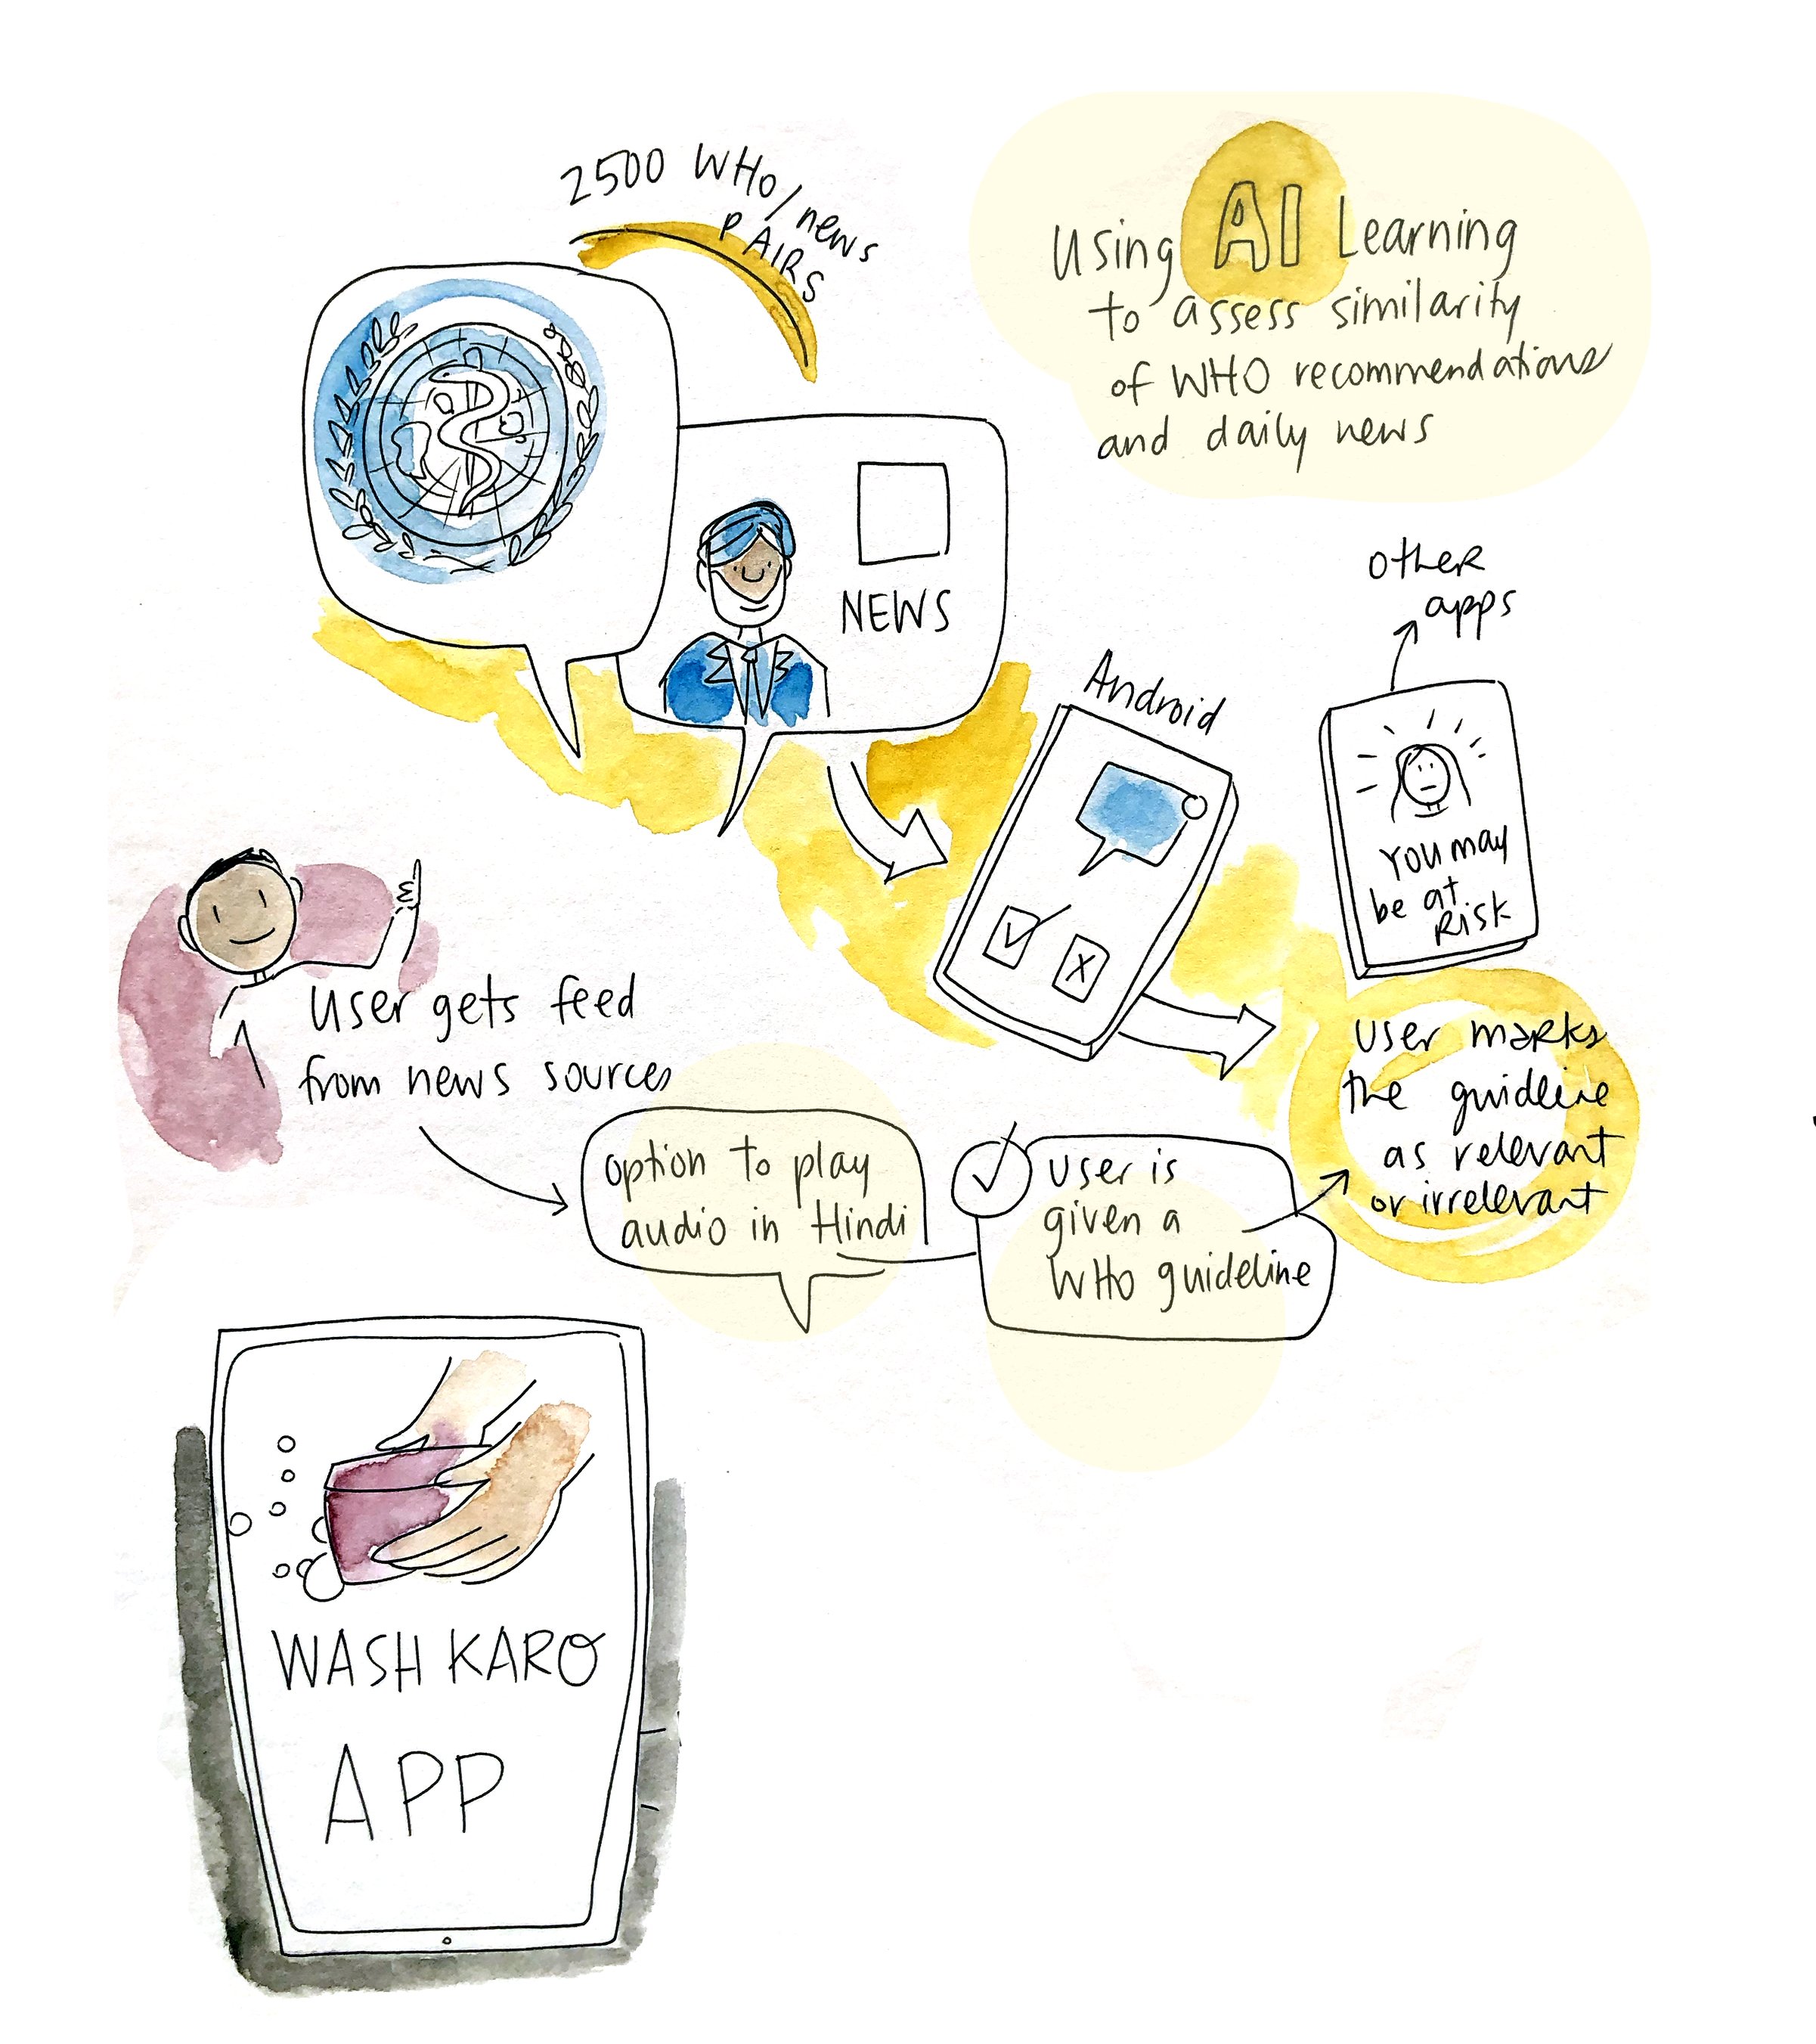 2500 WHO/news
PAIRS
Using AI Learning
to assess similarity
of WHO recommendations
and daily news
NEWS
other
apps
Android
You may
be at
Risk
User gets feed
from news sources
option to play
audio in Hindi
User is
given a
WHO guideline
User marks
the guideline
as relevant
or irrelevant
WASH KARO
APP